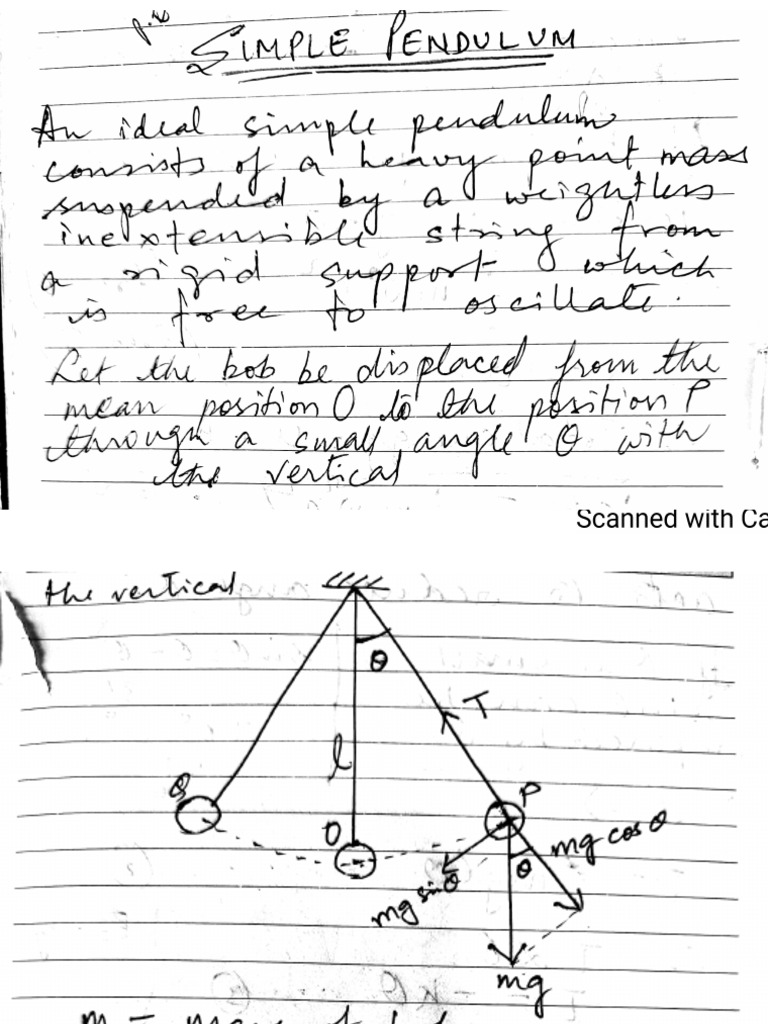 SIMPLE PENDULUM
An ideal simple pendulum
consists of a heavy point mass
suspended by a weightless
inextensible string from
a rigid support which
is free to oscillate.
Let the bob be displaced from the
mean position O to the position P
through a small angle θ with
the vertical
Scanned with Ca
the vertical
θ
T
l
Q
P
O
mg cos θ
θ
mg sin θ
mg